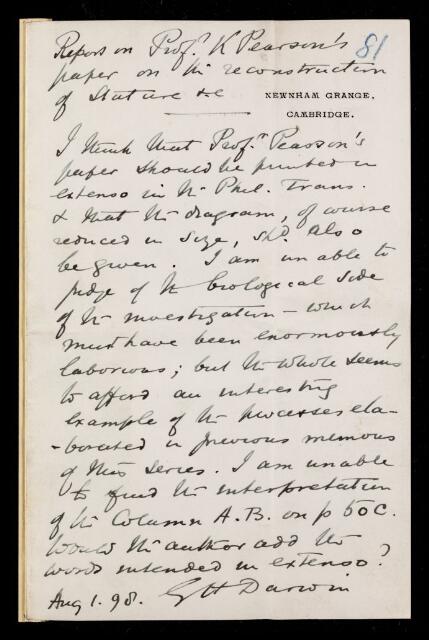 Report on Prof.r K Pearson's
81
paper on the reconstruction
of Stature &c
NEWNHAM GRANGE,
CAMBRIDGE.
I think that Prof.r Pearson's
paper should be printed in
extenso in the Phil. Trans.
& that the diagram, of course
reduced in size, shd. also
be given. I am unable to
judge of the biological side
of the investigation – which
must have been enormously
laborious; but the whole seems
to afford an interesting
example of the processes ela-
-borated in previous memoirs
of this series. I am unable
to find the interpretation
of the Column A.B. on p 50c.
Would the author add the
words intended in extenso?
Aug 1. 98. G H Darwin